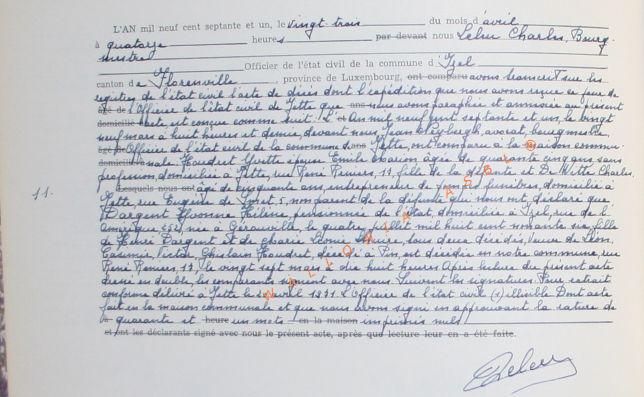 L'AN mil neuf cent septante et un, le vingt-trois du mois d'avril
à quatorze heures par devant nous Lebu Charles, Bourg-
mestre
Officier de l'état civil de la commune d'Izel
canton de Florenville, province de Luxembourg, ont comparu avons transcrit sur les
registres de l'état civil l'acte de décès dont l'expédition que nous avons reçue ce jour de
âgé de l'Officier de l'état civil de Jette que nous avons paraphée et annexée au présent
domicilié acte est conçue comme suit. L' et An neuf cent septante et un, le vingt
neuf mars à huit heures et demie, devant nous, Jean avocat, bourgmestre,
âgé de Officier de l'état civil de la commune de Jette, ont comparu à la maison commu-
domicilié nale: Houdret Yvette épouse Emile âgée de quarante cinq ans sans
profession, domiciliée à Jette, rue René 19, fille de la défunte et De Witte Charles
11. Lesquels nous ont âgé de cinquante ans, entrepreneur de pompes funèbres, domicilié à
Jette, rue Eugène 5, non parent de la défunte qui nous ont déclaré que
Dargent Yvonne Hélène, pensionnée de l'état, domiciliée à Izel, rue de l'
Amérique 252, née à Gérouville, le quatre juillet mil huit cent nonante six, fille
de Henri Dargent et de Marie Léonie tous deux décédés, veuve de Léon,
Casimir, Victor, Ghislain Houdret, décédé à Pin, est décédée en notre commune, rue
René 19, le vingt sept mars à dix huit heures. Après lecture du présent acte
dressé en double, les comparants signent avec nous. Suivent les signatures. Pour extrait
conforme délivré à Jette le avril 1971. L'Officier de l'état civil (s) illisible. Dont acte
fait en la maison communale et que nous avons signé en approuvant la rature de
quarante et heure un mots en la maison imprimés nuls
et ont les déclarants signé avec nous le présent acte, après que lecture leur en a été faite.
WALLONIA ASBL